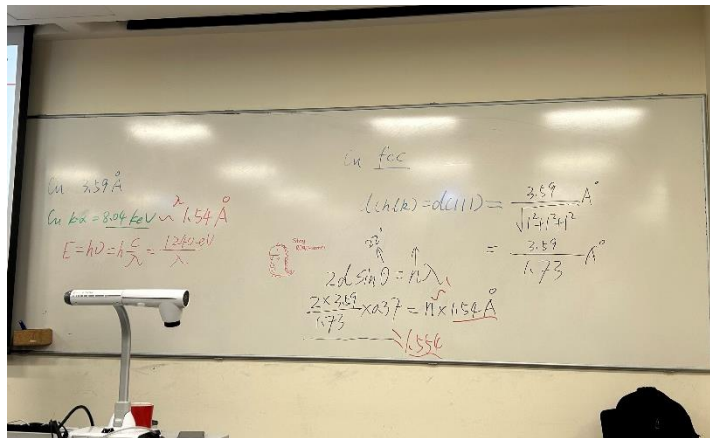 Cu 3.59 Å
Cu kα = 8.04 keV ~ λ 1.54 Å
E = hυ = h c/λ = 1240 eV/λ
Cu fcc
d(111) = 3.59/√1²+1²+1² Å
= 3.59/1.73 Å
2d sin θ = nλ
2×3.59/1.73 ×0.37 = n × 1.54 Å
1.554